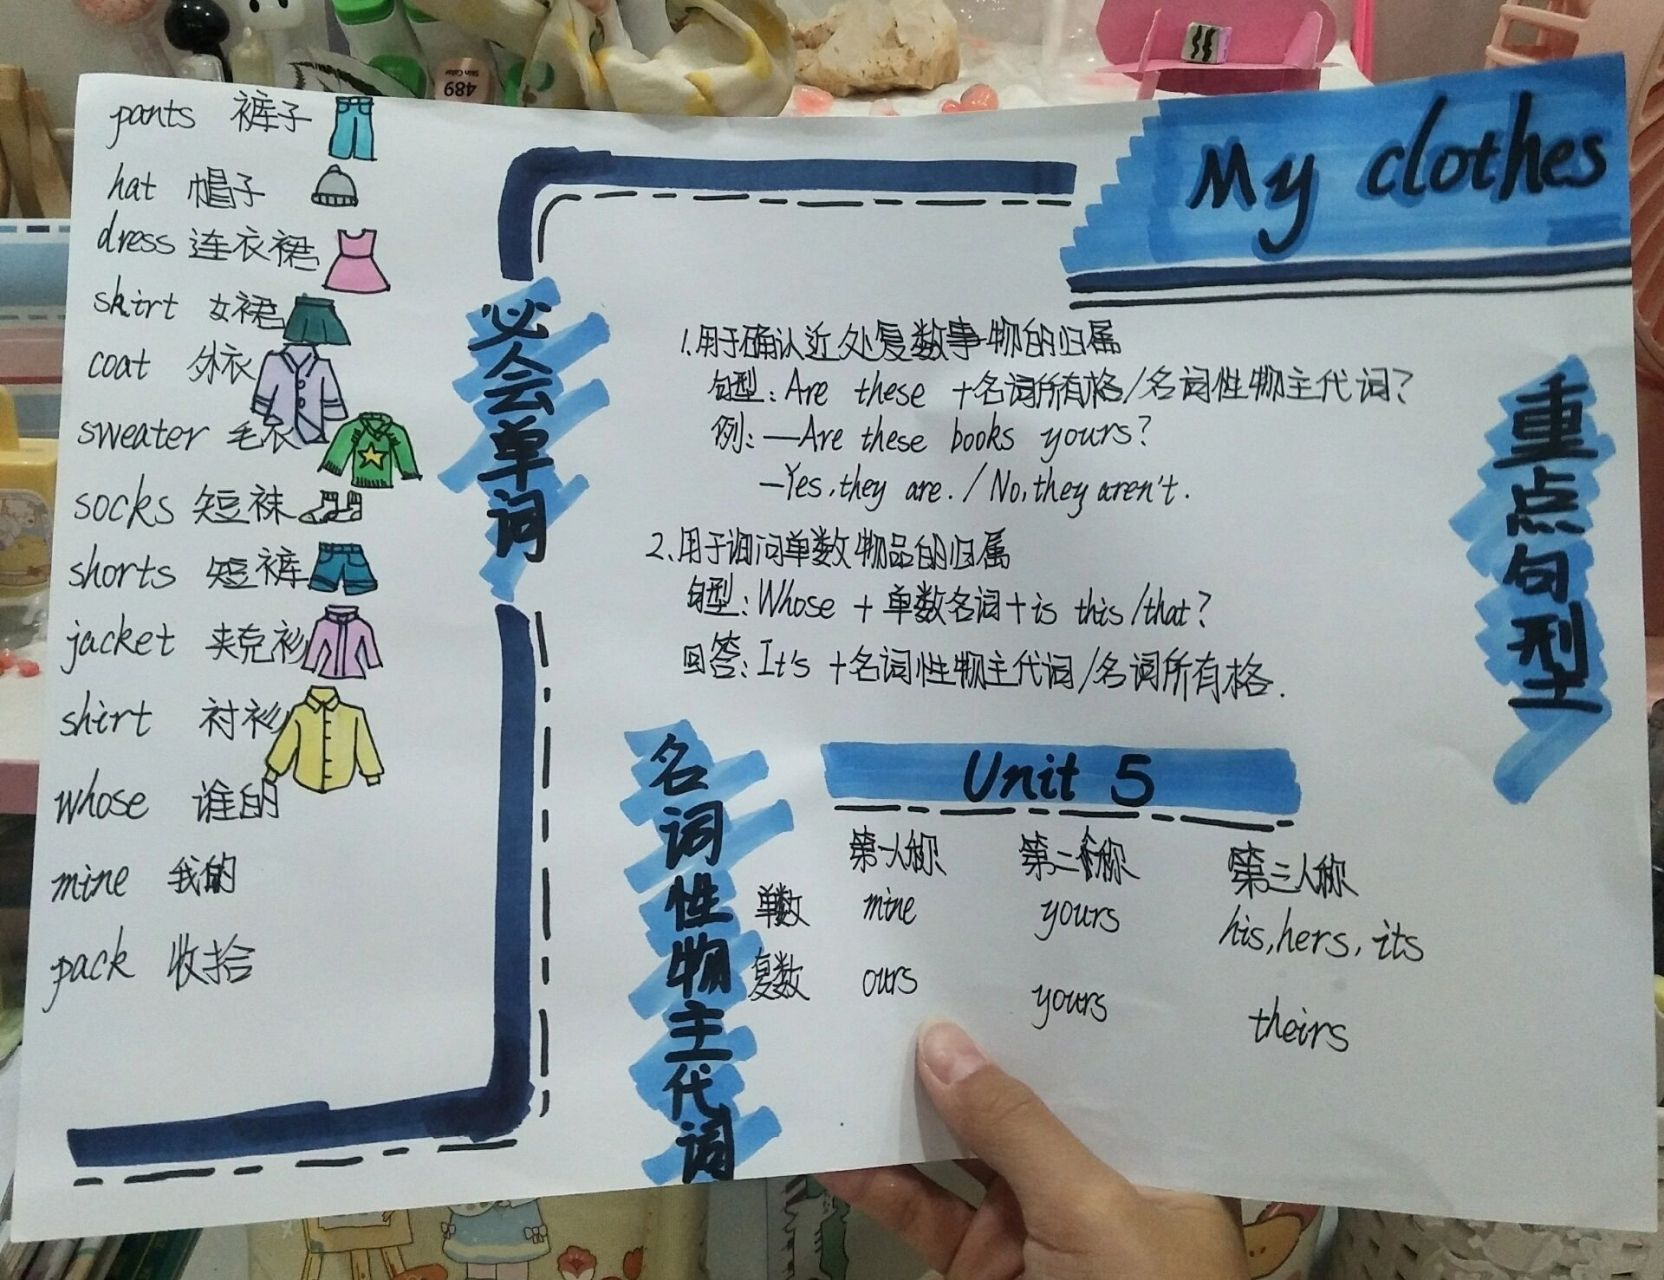 My clothes
pants 裤子
hat 帽子
dress 连衣裙
skirt 女裙
coat 外衣
sweater 毛衣
socks 短袜
shorts 短裤
jacket 夹克衫
shirt 衬衫
whose 谁的
mine 我的
pack 收拾
必会单词
1.用于确认近处复数事物的归属
句型:Are these +名词所有格/名词性物主代词?
例:—Are these books yours?
—Yes,they are. / No,they aren't.
2.用于询问单数物品的归属
句型:Whose + 单数名词+is this/that?
回答:It's +名词性物主代词/名词所有格.
重点句型
Unit 5
名词性物主代词
第一人称 第二人称 第三人称
单数 mine yours his,hers,its
复数 ours yours theirs
489